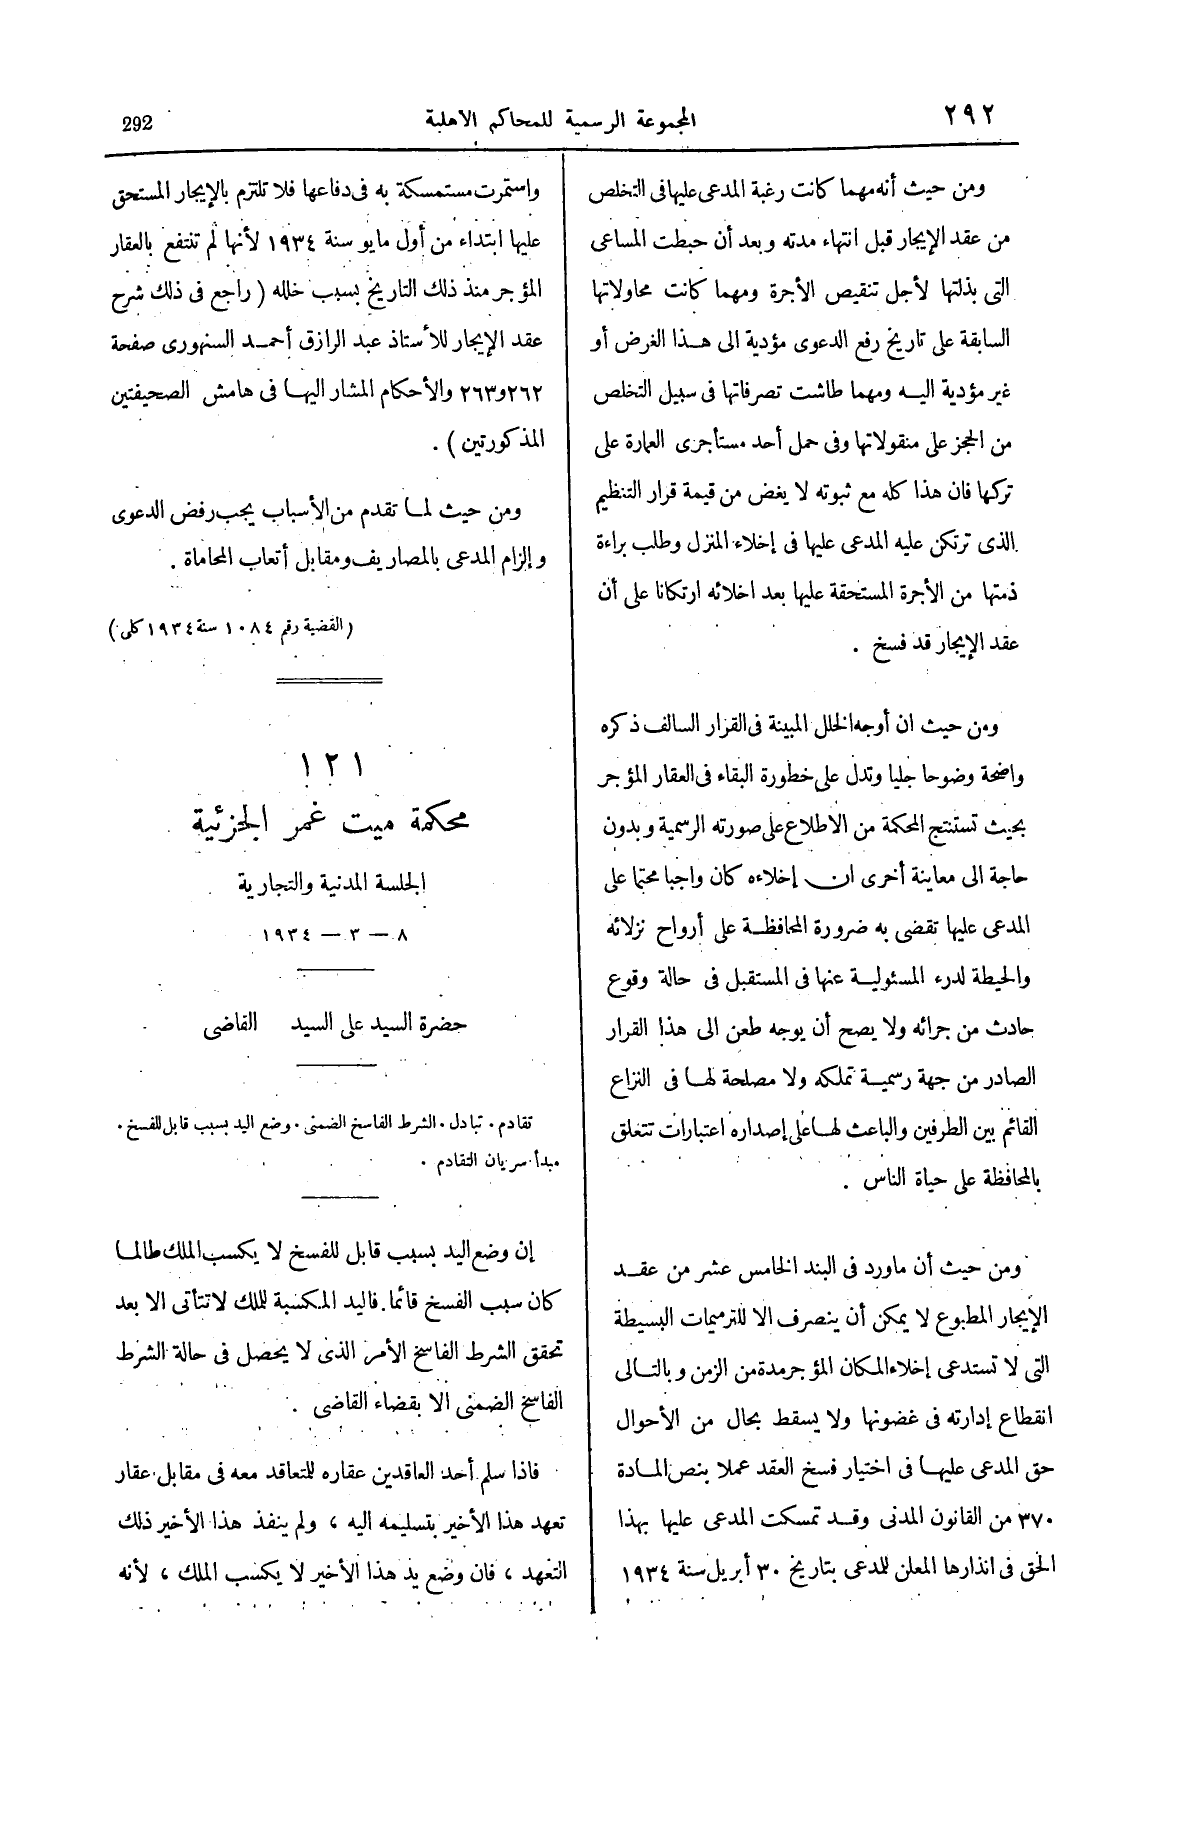 ٢٩٢
المجموعة الرسمية للمحاكم الاهلية
292
ومن حيث أنه مهما كانت رغبة المدعى عليها فى التخلص
من عقد الإيجار قبل انتهاء مدته وبعد أن حبطت المساعى
التى بذلتها لأجل تنقيص الأجرة ومهما كانت محاولاتها
السابقة على تاريخ رفع الدعوى مؤدية الى هذا الغرض أو
غير مؤدية اليه ومهما طاشت تصرفاتها فى سبيل التخلص
من الحجز على منقولاتها وفى حمل أحد مستأجرى العمارة على
تركها فان هذا كله مع ثبوته لا يغض من قيمة قرار التنظيم
الذى ترتكن عليه المدعى عليها فى إخلاء المنزل وطلب براءة
ذمتها من الأجرة المستحقة عليها بعد اخلائه ارتكانا على أن
عقد الإيجار قد فسخ .
ومن حيث ان أوجه الخلل المبينة فى القرار السالف ذكره
واضحة وضوحا جليا وتدل على خطورة البقاء فى العقار المؤجر
بحيث تستنتج المحكمة من الاطلاع على صورته الرسمية وبدون
حاجة الى معاينة أخرى ان إخلاءه كان واجبا محتما على
المدعى عليها تقضى به ضرورة المحافظة على أرواح نزلائه
والحيطة لدرء المسئولية عنها فى المستقبل فى حالة وقوع
حادث من جرائه ولا يصح أن يوجه طعن الى هذا القرار
الصادر من جهة رسمية تملكه ولا مصلحة لها فى النزاع
القائم بين الطرفين والباعث لها على إصداره اعتبارات تتعلق
بالمحافظة على حياة الناس .
ومن حيث أن ماورد فى البند الخامس عشر من عقد
الإيجار المطبوع لا يمكن أن ينصرف الا للترميمات البسيطة
التى لا تستدعى إخلاء المكان المؤجر مدة من الزمن وبالتالى
انقطاع إدارته فى غضونها ولا يسقط بحال من الأحوال
حق المدعى عليها فى اختيار فسخ العقد عملا بنص المادة
٣٧٠ من القانون المدنى وقد تمسكت المدعى عليها بهذا
الحق فى انذارها المعلن للمدعى بتاريخ ٣٠ أبريل سنة ١٩٣٤
واستمرت مستمسكة به فى دفاعها فلا تلتزم بالإيجار المستحق
عليها ابتداء من أول مايو سنة ١٩٣٤ لأنها لم تنتفع بالعقار
المؤجر منذ ذلك التاريخ بسبب خلله ( راجع فى ذلك شرح
عقد الإيجار للأستاذ عبد الرازق أحمد السنهورى صفحة
٢٦٢و٢٦٣ والأحكام المشار اليها فى هامش الصحيفتين
المذكورتين ) .
ومن حيث لما تقدم من الأسباب يجب رفض الدعوى
وإلزام المدعى بالمصاريف ومقابل أتعاب المحاماة .
( القضية رقم ١٠٨٤ سنة ١٩٣٤ كلى )
١٢١
محكمة ميت غمر الجزئية
الجلسة المدنية والتجارية
٨ — ٣ — ١٩٣٤
حضرة السيد على السيد القاضى
تقادم . تبادل . الشرط الفاسخ الضمنى . وضع اليد بسبب قابل للفسخ .
مبدأ سريان التقادم .
إن وضع اليد بسبب قابل للفسخ لا يكسب الملك طالما
كان سبب الفسخ قائما. فاليد المكسبة للملك لا تتأتى الا بعد
تحقق الشرط الفاسخ الأمر الذى لا يحصل فى حالة الشرط
الفاسخ الضمنى الا بقضاء القاضى .
فاذا سلم أحد العاقدين عقاره للمتعاقد معه فى مقابل عقار
تعهد هذا الأخير بتسليمه اليه ، ولم ينفذ هذا الأخير ذلك
التعهد ، فان وضع يد هذا الأخير لا يكسب الملك ، لأنه